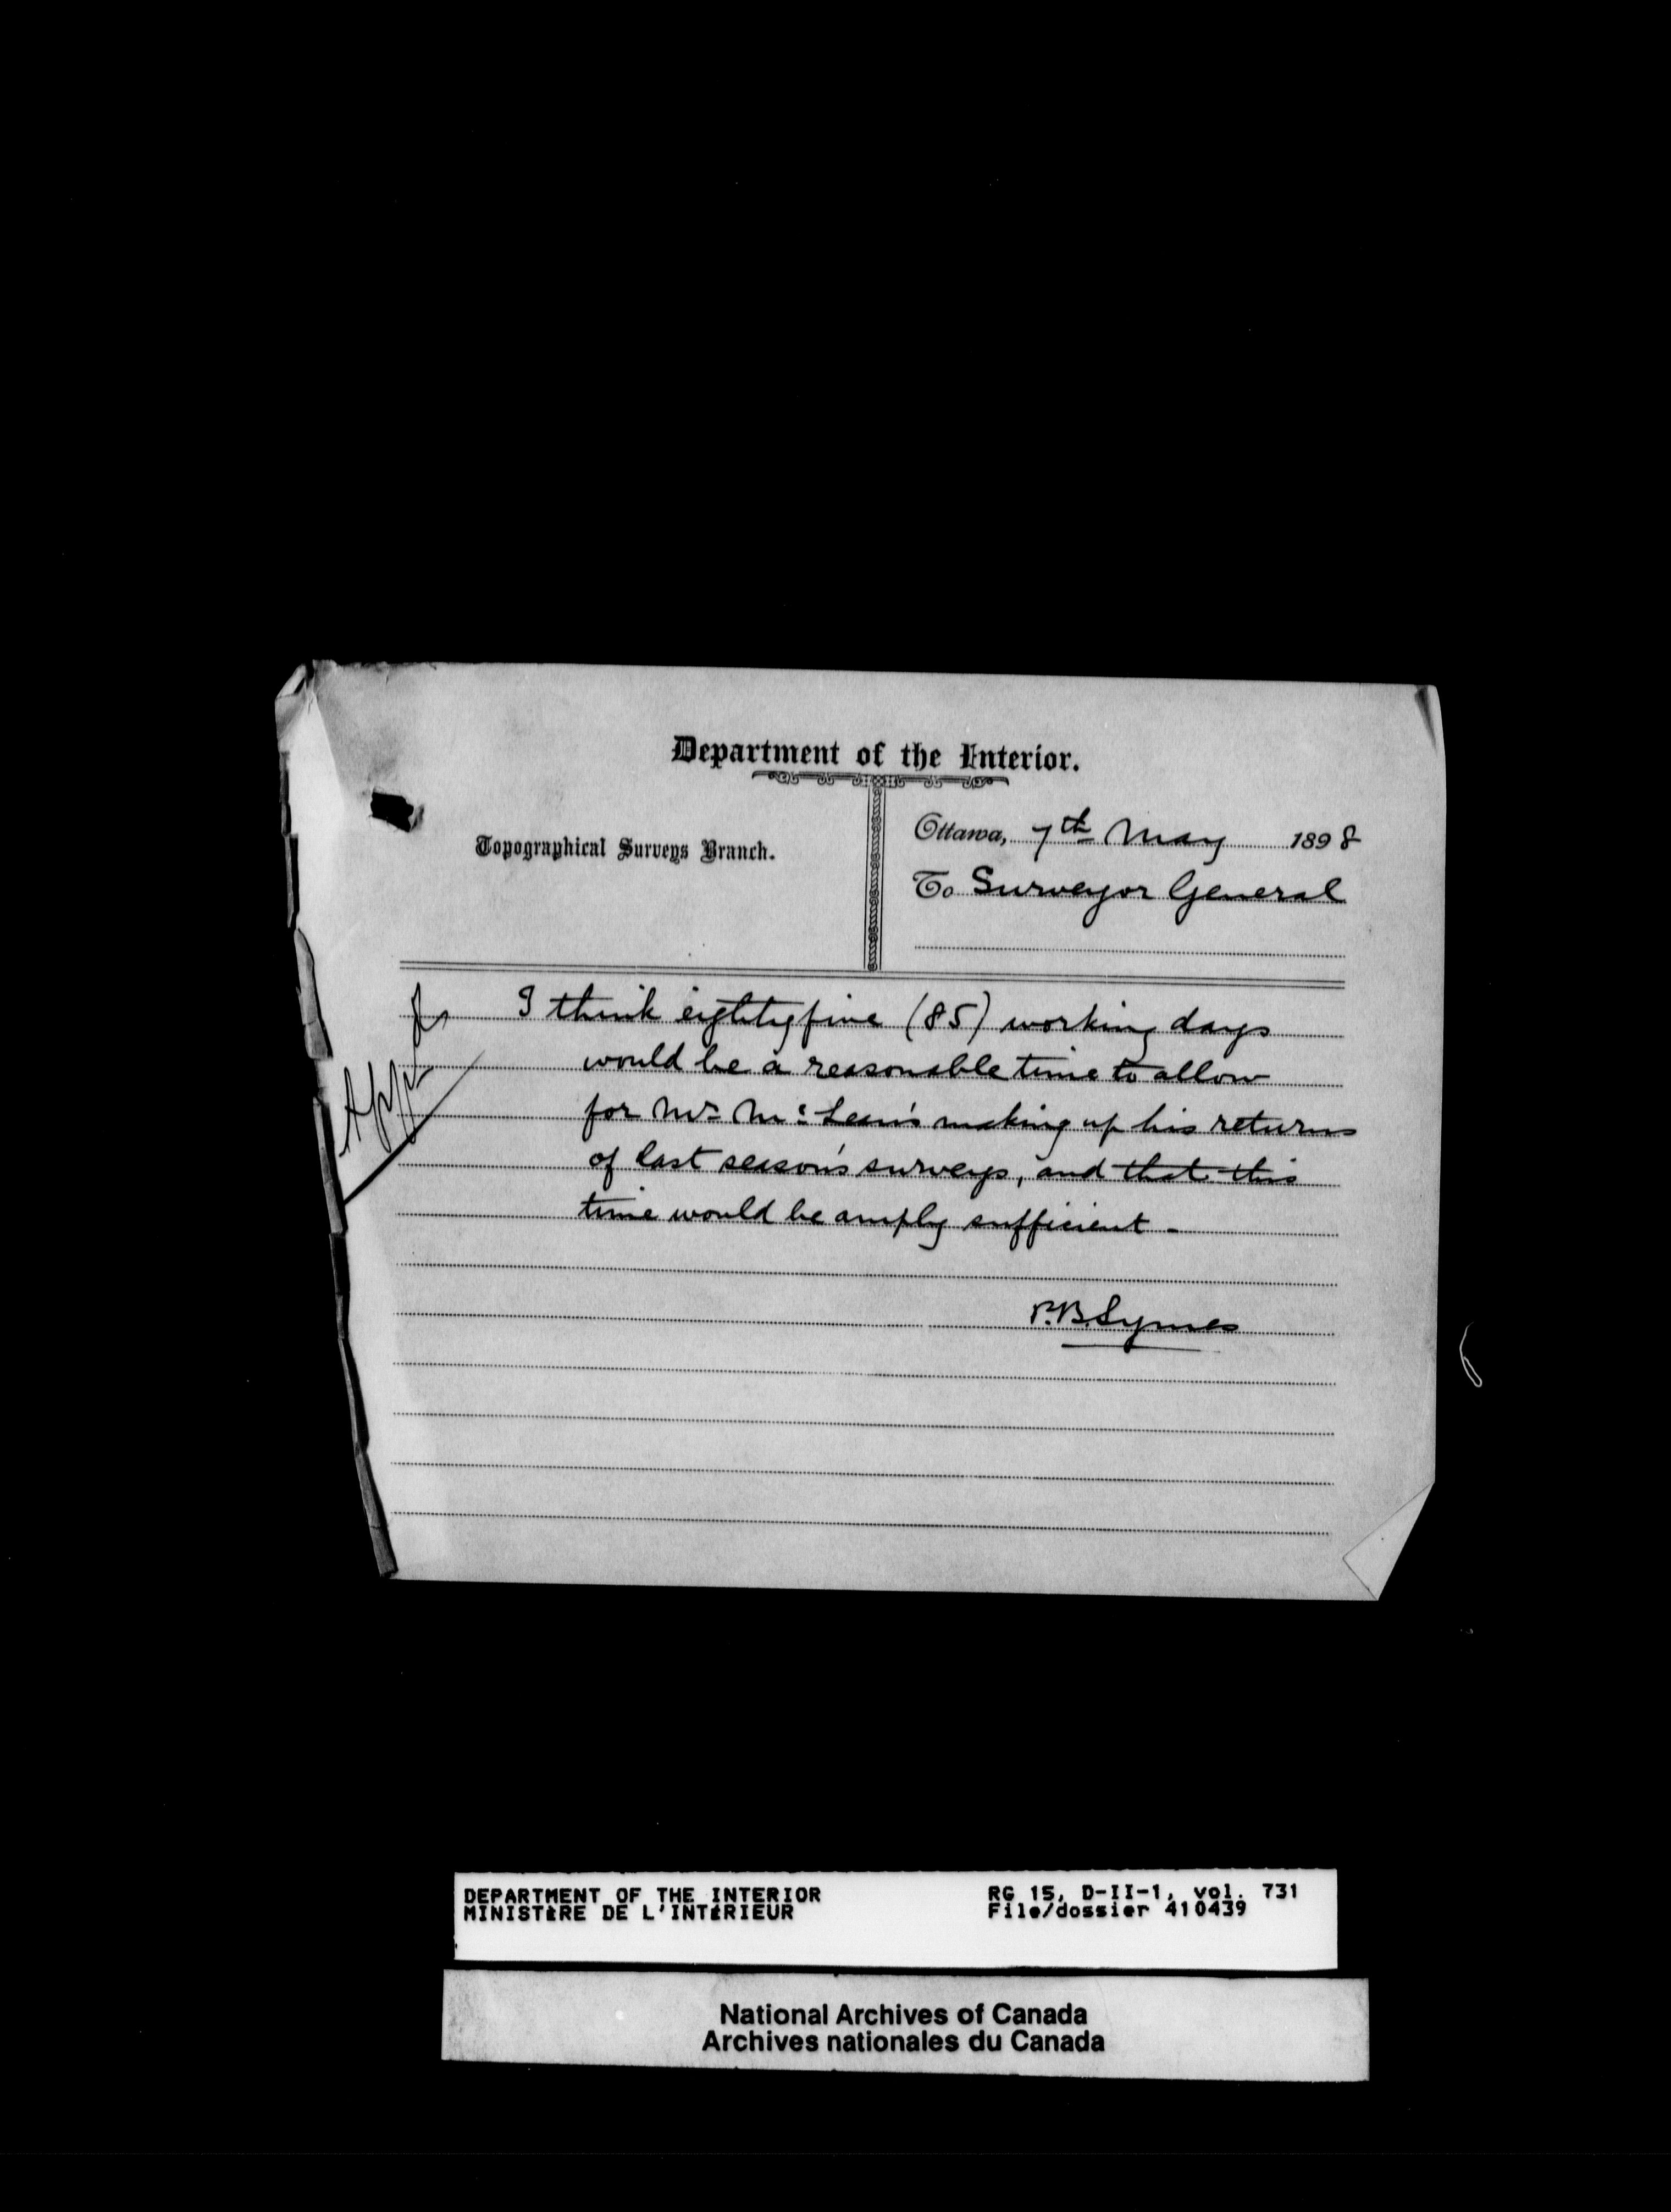 Department of the Interior.
Topographical Surveys Branch.
Ottawa, 7th May 1898
To Surveyor General
I think eighty five (85) working days
would be a reasonable time to allow
for Mr. Mc. Lean's making up his returns
of last season's surveys, and that this
time would be amply sufficient -
P.B. Symes
DEPARTMENT OF THE INTERIOR
MINISTÈRE DE L'INTÉRIEUR
RG 15, D-II-1, vol. 731
File/dossier 410439
National Archives of Canada
Archives nationales du Canada